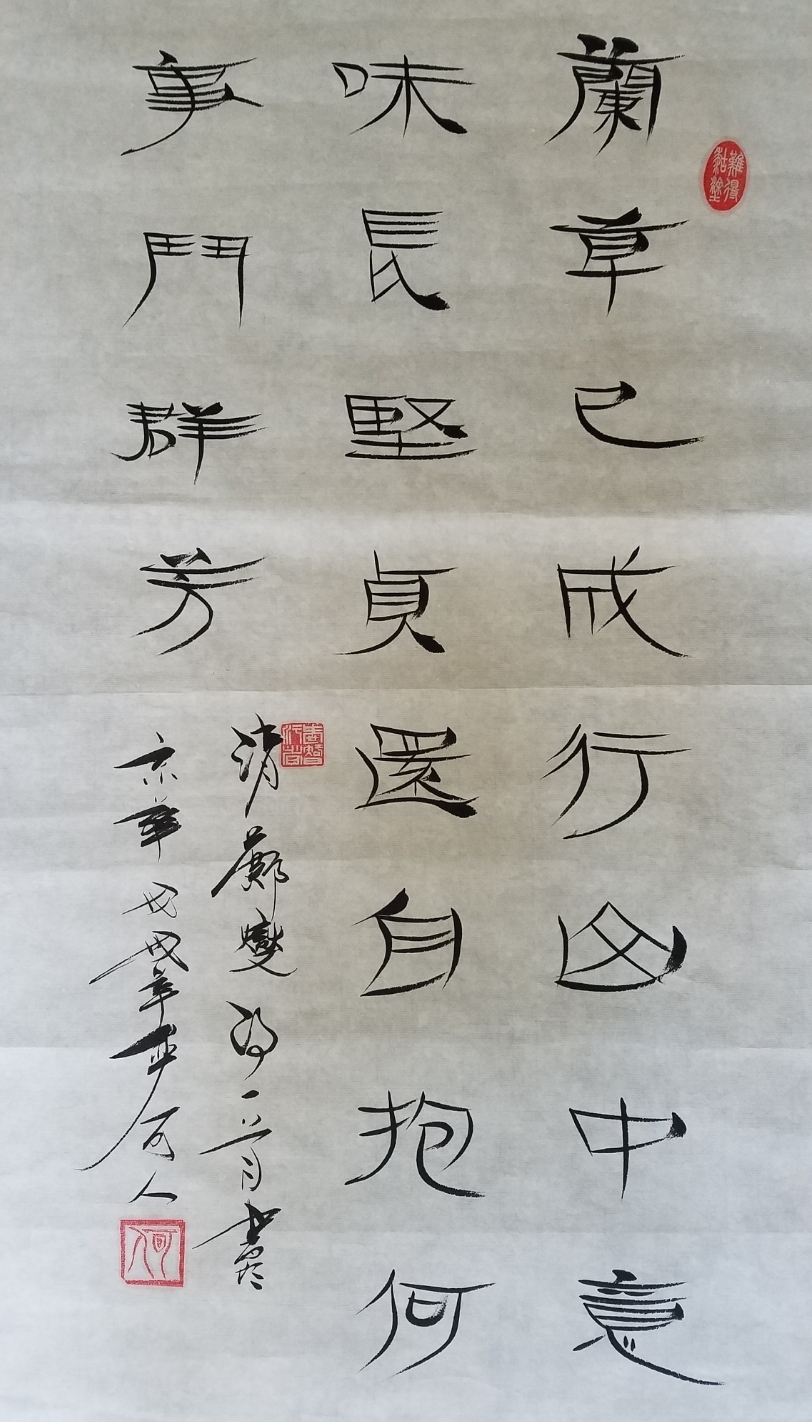 蘭草已成行山中意
味長堅貞還自抱何
事鬥群芳
清鄭燮詩一首書於
京華戊戌年季何人
難得糊塗